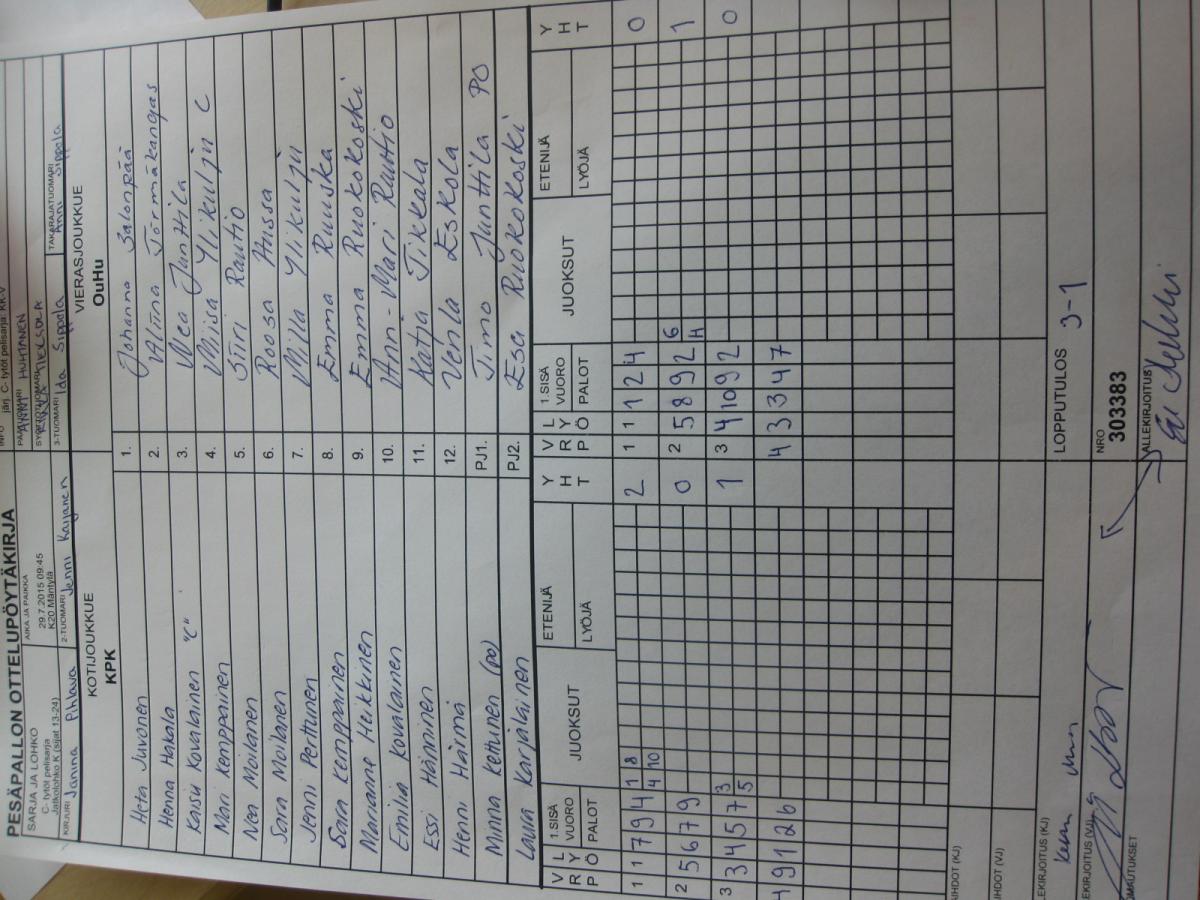 PESÄPALLON OTTELUPÖYTÄKIRJA
INFO järj. C- tytöt pelisarja: KK-V
SARJA JA LOHKO
C- tytöt pelisarja
Jatkolohko K (sijat 13-24)
AIKA JA PAIKKA
29.7.2015 09:45
K20 Mäntylä
PÄÄTUOMARI ANNI HUHTANEN
SYÖTTÖTUOMARI
KIRJURI Janina Pihlava
2-TUOMARI Jenni Karjanen
3-TUOMARI Ida Sippola
TAKARAJATUOMARI Anni Sippola
KOTIJOUKKUE
KPK
VIERASJOUKKUE
OuHu
Heta Juvonen 1. Johanna Salonpää
Henna Hakala 2. Aliina Törmäkangas
Kaisu Kovalainen "C" 3. Nea Junttila
Mari Kemppainen 4. Miisa Ylikulju C
Nea Moilanen 5. Siiri Rautio
Sara Moilanen 6. Roosa Hussa
Jenni Perttunen 7. Milla Ylikulju
Sara Kemppainen 8. Emma Ruuska
Marianne Heikkinen 9. Emma Ruokokoski
Emilia Kovalainen 10. Ann-Mari Rautio
Essi Hänninen 11. Katja Tikkala
Henni Härmä 12. Venla Eskola
Minna Kettunen (po) PJ1. Timo Junttila PO
Laura Karjalainen PJ2. Esa Ruokokoski
V R P L Y Ö 1.SISÄ VUORO PALOT JUOKSUT ETENIJÄ LYÖJÄ Y H T V R P L Y Ö 1.SISÄ VUORO PALOT JUOKSUT ETENIJÄ LYÖJÄ Y H T
1 1 7 9 4 1 8 2 1 1 1 2 4 0
4 10
2 5 6 7 9 0 2 5 8 9 2 6 1
H
3 3 4 5 7 3 1 3 4 10 9 2 0
5
4 9 1 2 6 4 3 3 4 7
LOPPUTULOS 3-1
NRO
303383
ALLEKIRJOITUS